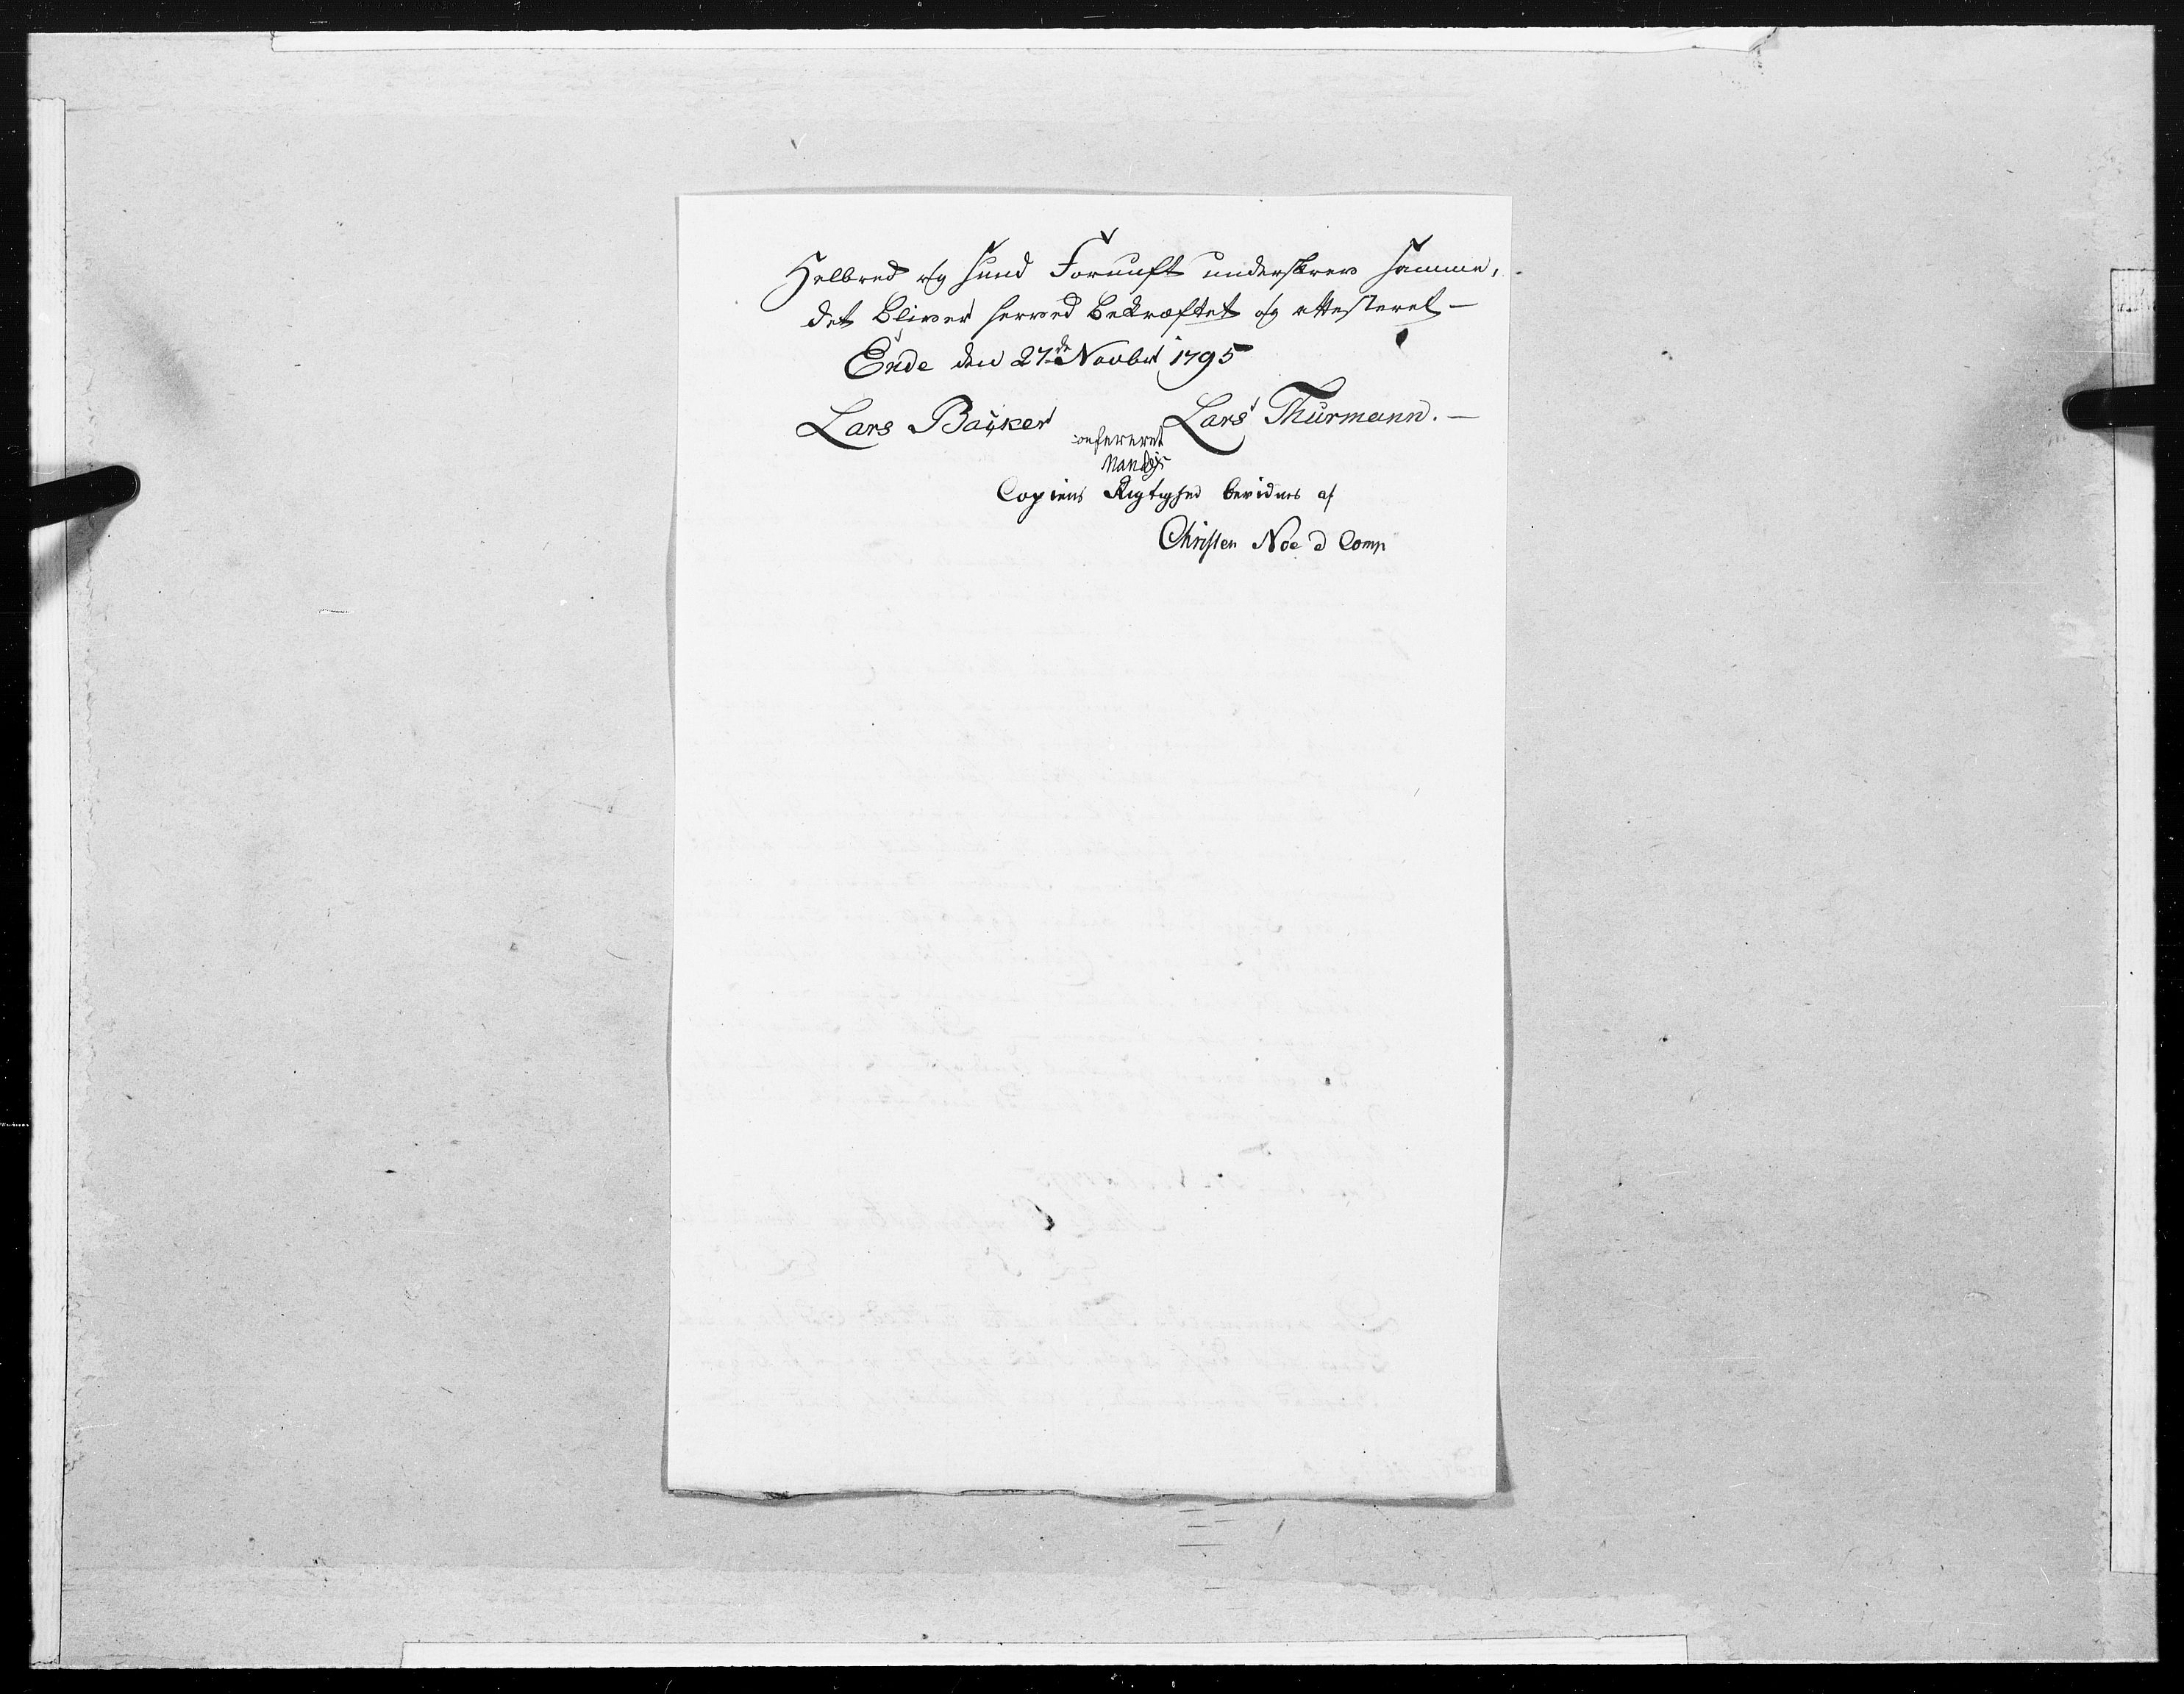 Helbred og Sund Fornuft underskrev Samme,
det bliver herved bekræftet og attesteret –
Ende den 27de Novbr 1795
Lars Bayker Lars Thurmann. –
confereret
Copiens Rigtighed bevidnes af
Christen Noe d Comp